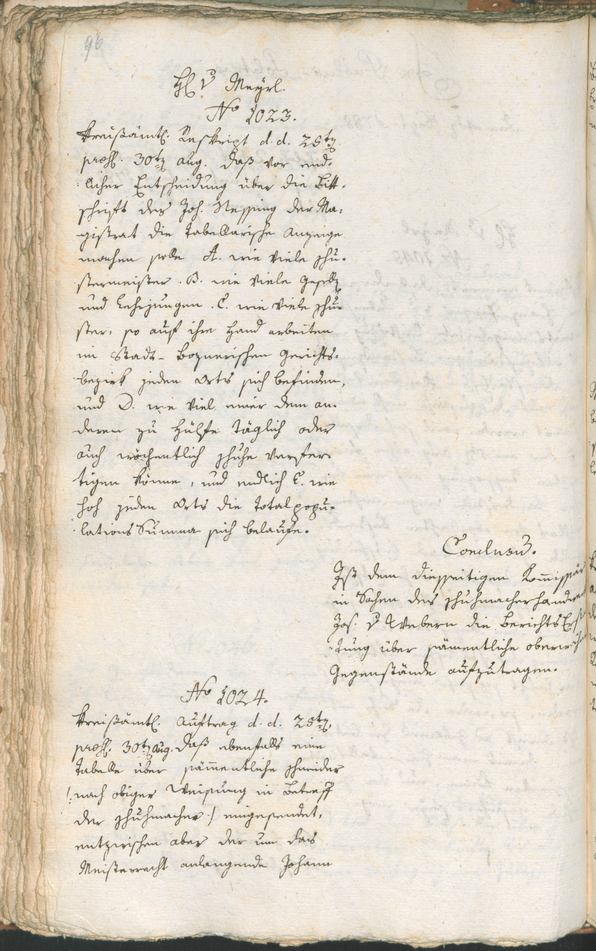 96
H. v Mayrl.
No 1023.
Kreisämtl. Reskript d. d. 28ten
præs. 30ten aug. daß vor end-
licher Entscheidung über die Bitt-
schrift des Joh. Nessing der Ma-
gistrat die tabellarische Anzeige
machen solle A. wie viele Schu-
stermeister. B. wie viele Gesellen
und Lehrjungen. C. wie viele Schu-
ster, so auf ihre Hand arbeiten
im Stadt-Boznerischen Gerichts-
bezirk jeden Orts sich befinden,
und D. wie viel einer dem an-
deren zu Hülfe täglich oder
auch wochentlich Schuhe verfer-
tigen könne, und endlich E. wie
hoh jeden Orts die Totalpopu-
lations Summa sich belaufe.
Conclusum.
Ist dem diesseitigen Kommissär
in Sachen des Schuhmacherhandwerks
Jos. v Webern die Berichts Erstat-
tung über sämentliche obere
Gegenstände aufzutragen.
No 1024.
Kreisämtl. Auftrag d. d. 28ten
præs. 30ten aug. Daß ebenfalls eine
Tabelle über sämentliche Schneider
/: nach obiger Weisung in Betreff
der Schuhmacher :/ eingesendet,
entzwischen aber der um das
Meisterrecht anlangende Johann